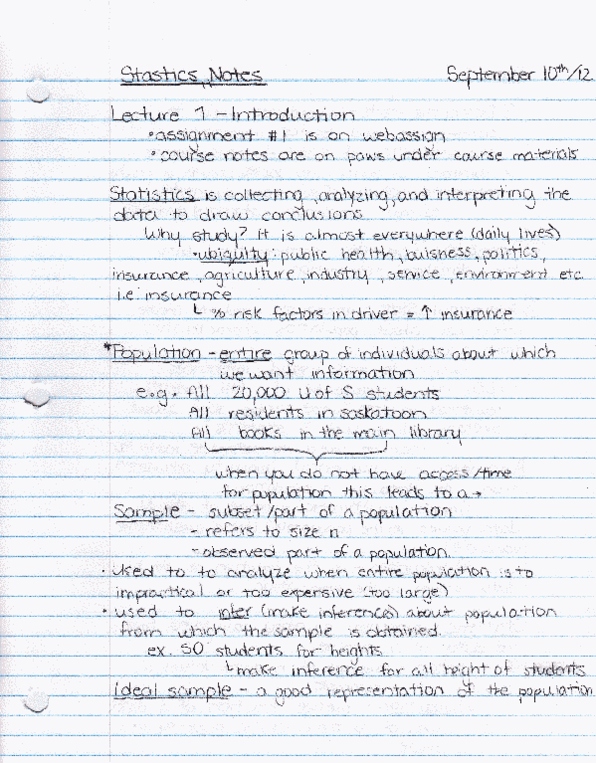 Stastics Notes September 10th/12
Lecture 1 - Introduction
• assignment #1 is on webassign
• course notes are on paws under course materials
Statistics is collecting, analyzing, and interpreting the
data to draw conclusions.
Why study? It is almost everywhere (daily lives)
• ubiquity: public health, buisness, politics,
insurance, agriculture, industry, service, environment etc.
i.e: insurance
↳ % risk factors in driver = ↑ insurance
*Population - entire group of individuals about which
we want information
e.g. All 20,000 U of S students
All residents in saskatoon
All books in the main library
when you do not have access/time
for population this leads to a →
Sample - subset/part of a population
- refers to size n
- observed part of a population.
• Used to to analyze when entire population is to
impractical or too expensive (too large)
• used to infer (make inference) about population
from which the sample is obtained.
ex. 50 students for heights
↳ make inference for all height of students
Ideal sample - a good representation of the population.